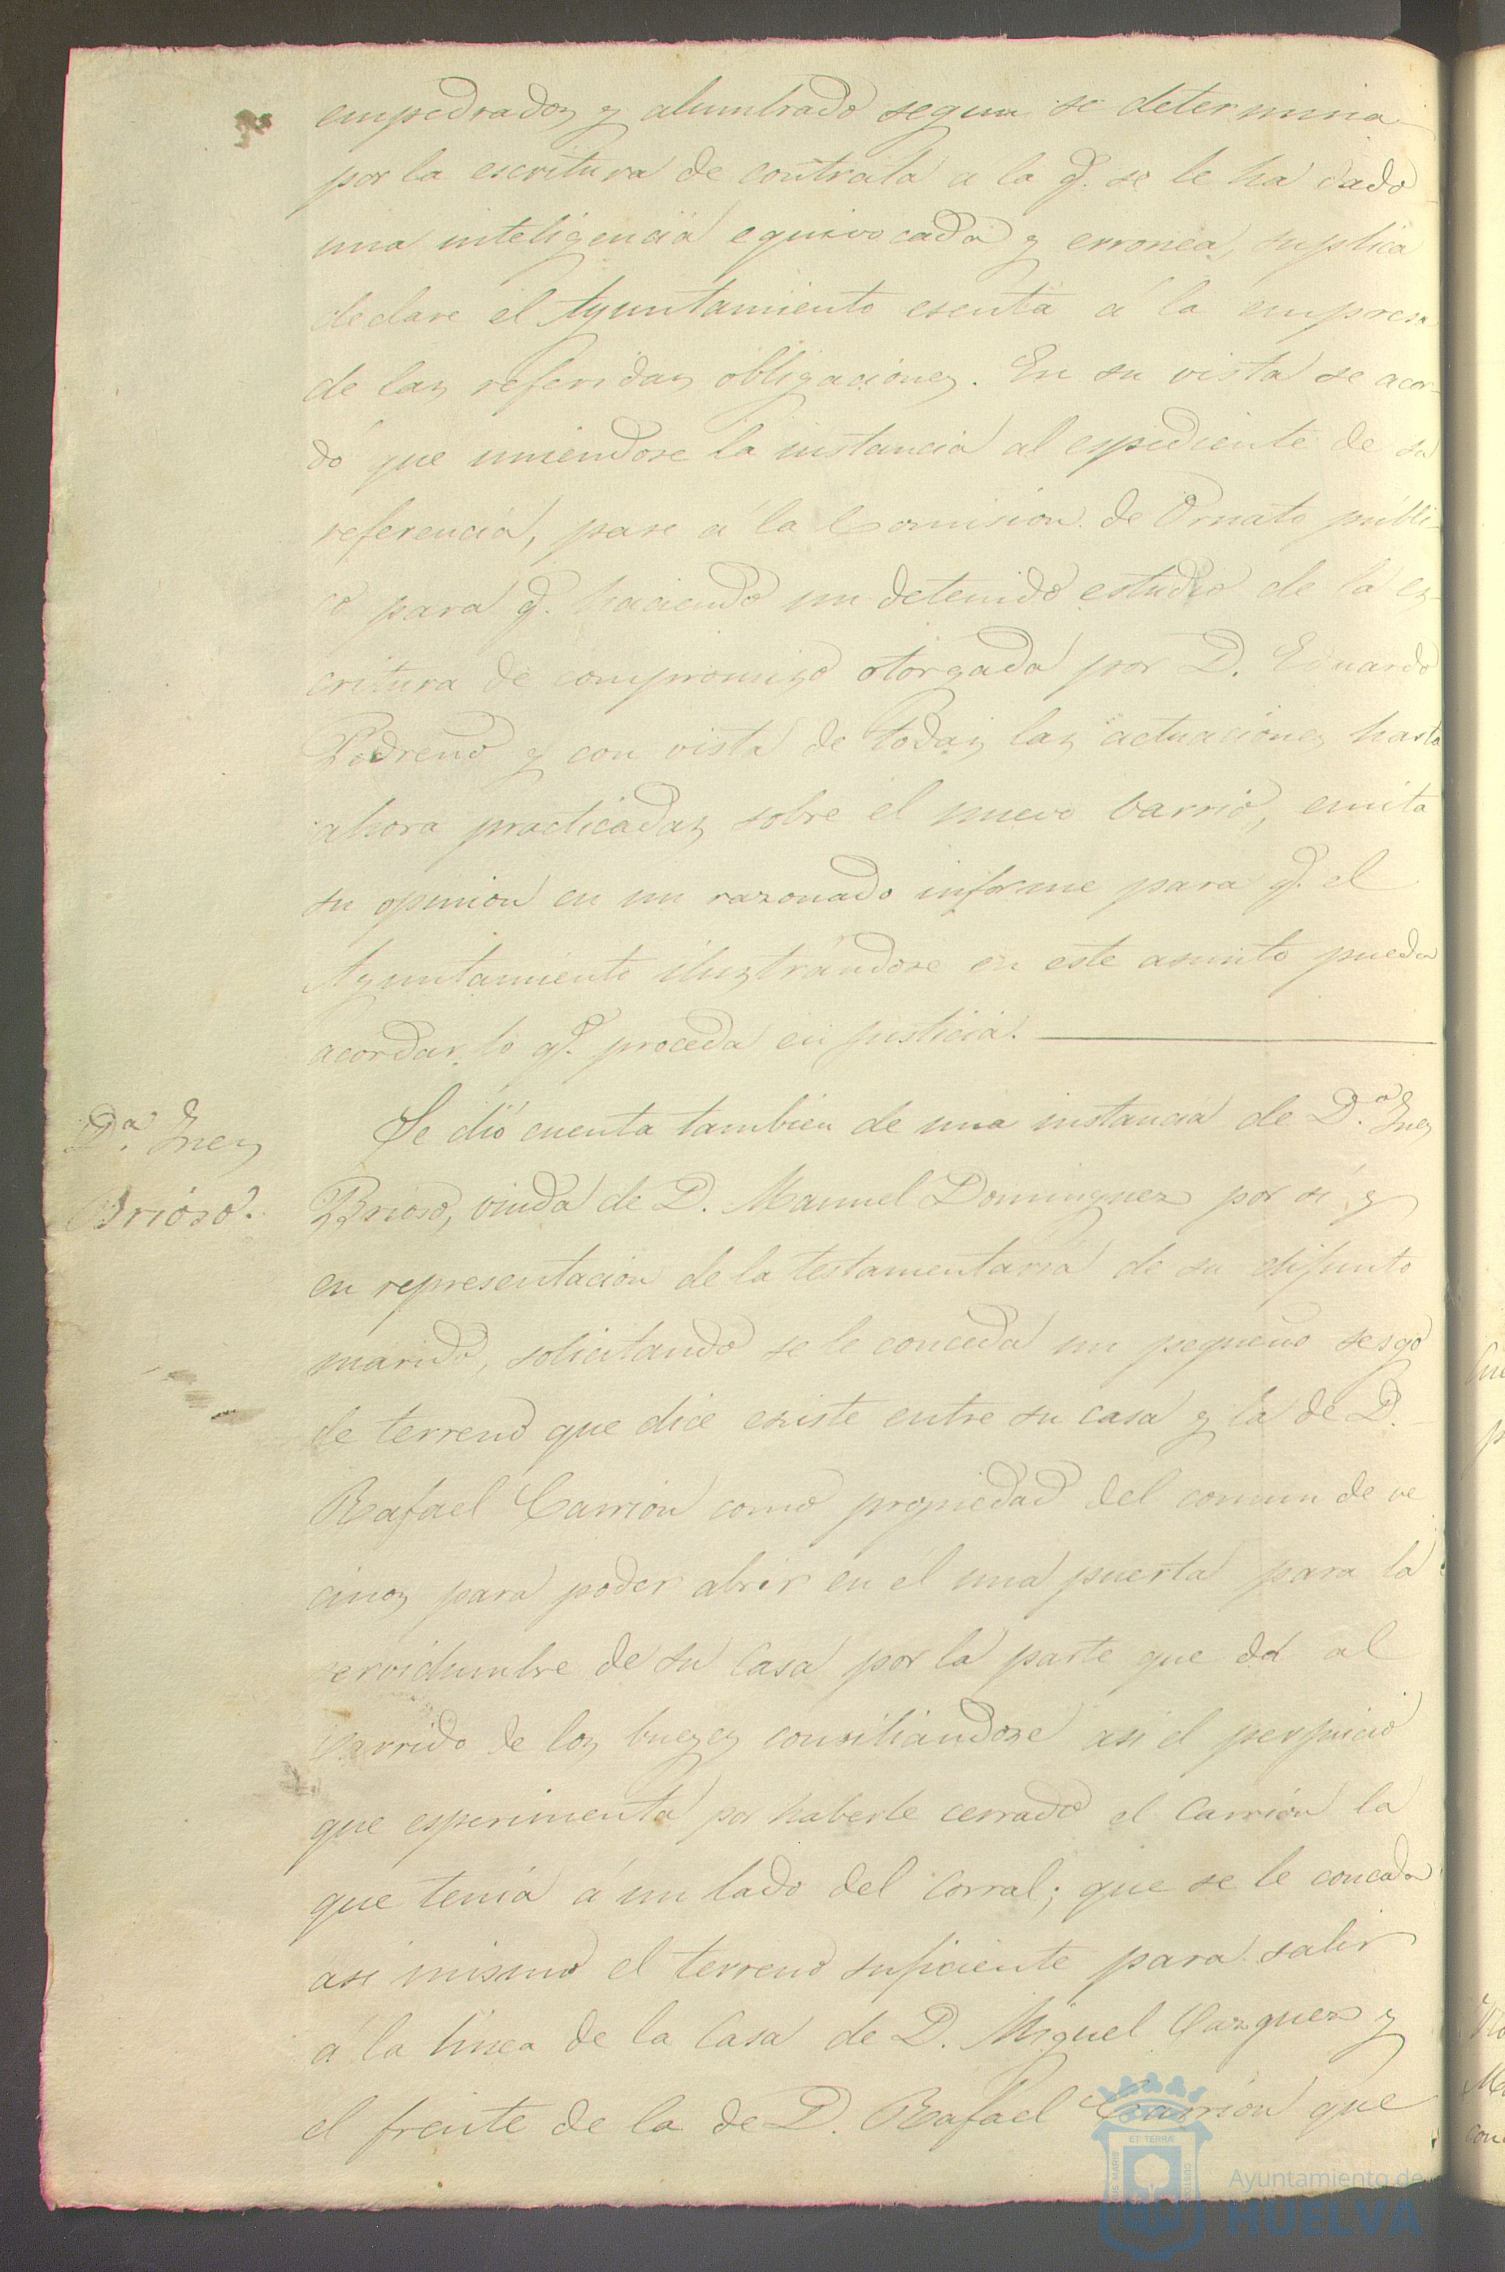 empedrados y alumbrado segun se determina
por la escritura de contrata a la q. se le ha dado
una inteligencia equivocada y erronea, suplica
declare el Ayuntamiento esenta á la empresa
de las referidas obligaciones. En su vista se acor-
dó que uniendose la instancia al espediente de su
referencia, pase á la Comision de Ornato públi-
co para q. haciendo un detenido estudio de la es-
critura de compromiso otorgada por D. Eduardo
Pedreño y con vista de todas las actuaciones hasta
ahora practicadas sobre el nuevo barrio, emita
su opinion en un razonado informe para q. el
Ayuntamiento ilustrándose en este asunto pueda
acordar lo q. proceda en justicia.
D.ª Ines
Brioso.
Se dió cuenta tambien de una instancia de D.ª Ines
Brioso, viuda de D. Manuel Dominguez por sí y
en representacion de la testamentaria de su difunto
marido, solicitando se le conceda un pequeño sesgo
de terreno que dice existe entre su casa y la de D.
Rafael Carrion como propiedad del comun de ve
cinos para poder abrir en él una puerta para la
servidumbre de su casa por la parte que dá al
Carrido de los bueyes consiliandose asi el perjuicio
que esperimenta por haberle cerrado el Carrion la
que tenia á un lado del corral; que se le conceda
asi mismo el terreno suficiente para salir
á la linea de la Casa de D. Miguel Vazquez y
el frente de la de D. Rafael Carrion que
ET TERRÆ
Ayuntamiento de
HUELVA